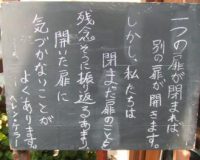 一つの扉が閉まれば、
別の扉が開きます。
しかし、私たちは
閉まった扉のことを
残念そうに振り返るあまり
開いた扉に
気づかないことが
よくあります。
ヘレン・ケラー